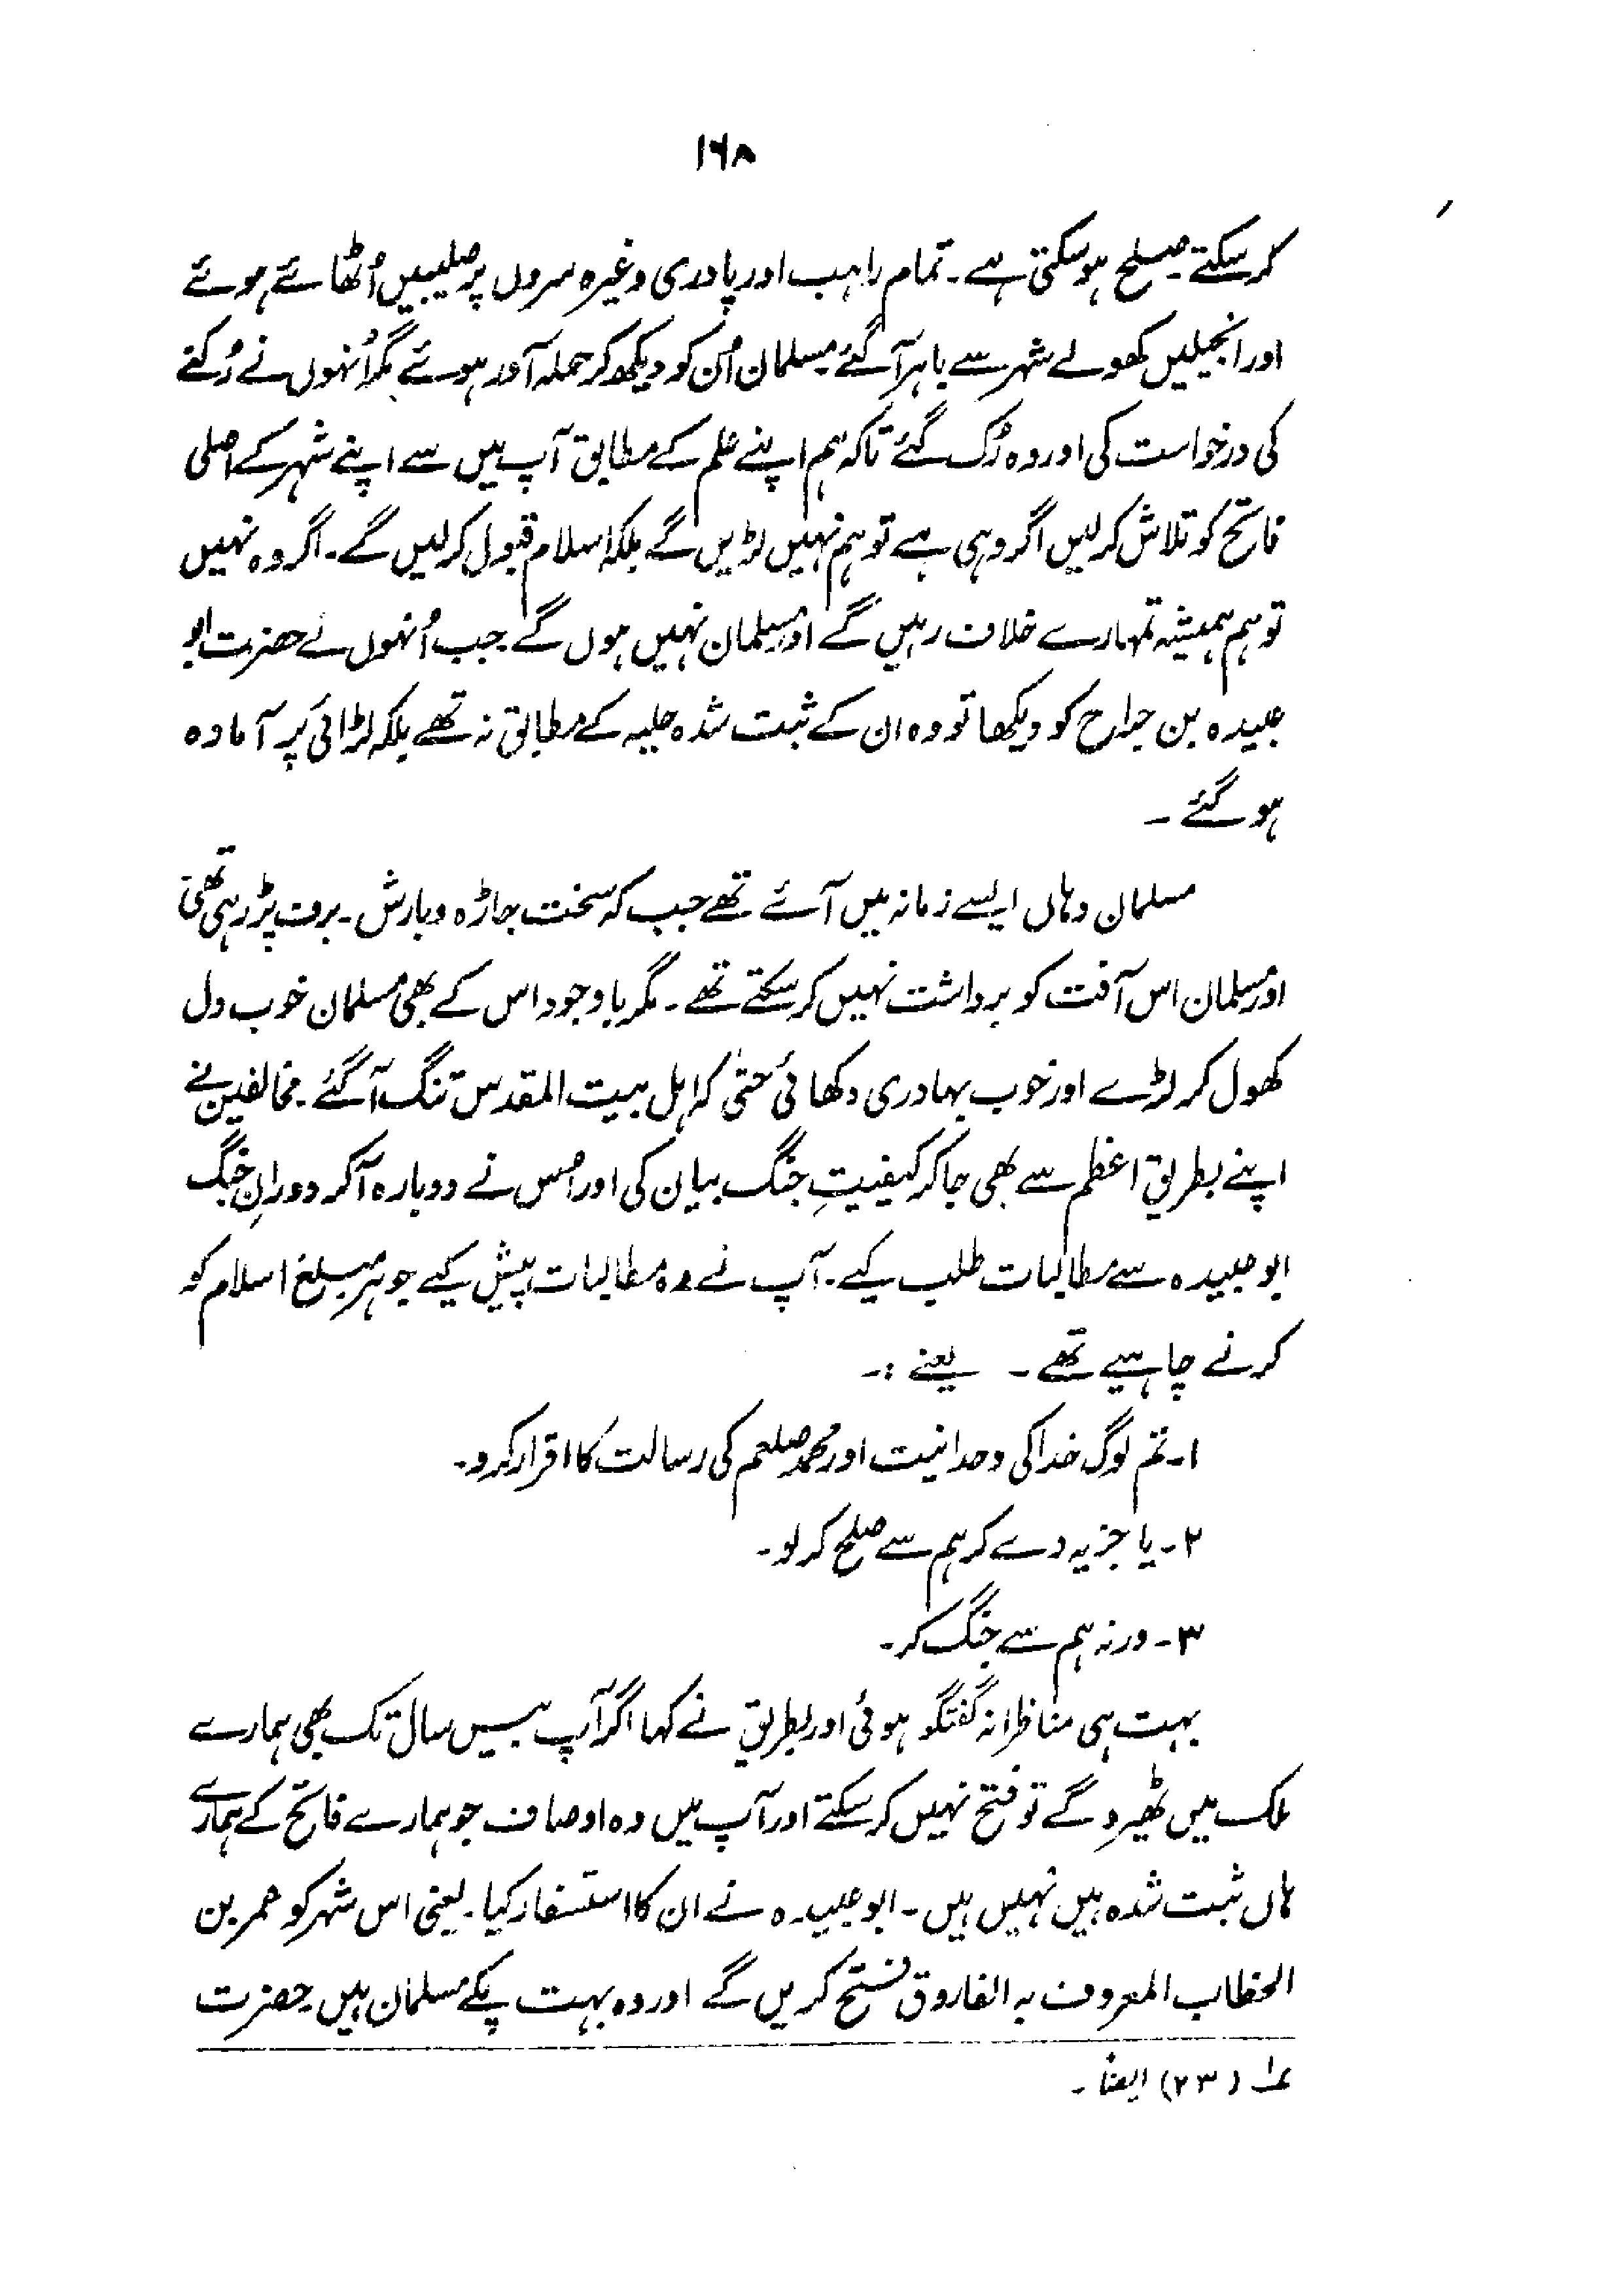 ۱۶۸
کر سکتے۔ صلح ہو سکتی ہے۔ تمام راہب اور پادری وغیرہ سروں پر صلیبیں اُٹھائے ہوئے
اور انجیلیں کھولے شہر سے باہر آگئے مسلمان اُن کو دیکھ کر حملہ آور ہوئے مگر اُنہوں نے رُکنے
کی درخواست کی اور وہ رُک گئے تاکہ ہم اپنے علم کے مطابق آپ میں سے اپنے شہر کے اصلی
فاتح کو تلاش کر لیں اگر وہی ہے تو ہم نہیں لڑیں گے بلکہ اسلام قبول کر لیں گے۔ اگر وہ نہیں
تو ہم ہمیشہ تمہارے خلاف رہیں گے اور مسلمان نہیں ہوں گے۔ جب اُنہوں نے حضرت ابو
عبیدہ بن جراح کو دیکھا تو وہ ان کے ثبت شدہ حلیہ کے مطابق نہ تھے بلکہ لڑائی پر آمادہ
ہو گئے۔
مسلمان وہاں ایسے زمانہ میں آئے تھے جب کہ سخت جاڑہ و بارش۔ برف پڑ رہی تھی
اور مسلمان اس آفت کو برداشت نہیں کر سکتے تھے۔ مگر باوجود اس کے بھی مسلمان خوب دل
کھول کر لڑے اور خوب بہادری دکھائی حتیٰ کہ اہل بیت المقدس تنگ آگئے۔ مخالفین نے
اپنے بطریق اعظم سے بھی جا کر کیفیتِ جنگ بیان کی اور اس نے دوبارہ آکر دورانِ جنگ
ابو عبیدہ سے مطالبات طلب کیے۔ آپ نے وہ مطالبات پیش کیے جو ہر مبلغ اسلام کو
کرنے چاہییے تھے۔ یعنے :۔
۱۔ تم لوگ خدا کی وحدانیت اور محمد صلعم کی رسالت کا اقرار کرو۔
۲۔ یا جزیہ دے کر ہم سے صلح کر لو۔
۳۔ ورنہ ہم سے جنگ کر۔
بہت ہی مناظرانہ گفتگو ہوئی اور بطریق نے کہا اگر آپ بیس سال تک بھی ہمارے
ملک میں ٹھیرو گے تو فتح نہیں کر سکتے اور آپ میں وہ اوصاف جو ہمارے فاتح کے ہمارے
ہاں ثبت شدہ ہیں نہیں ہیں۔ ابو عبیدہ نے ان کا استسفار کیا۔ یعنی اس شہر کو عمر بن
الخطاب المعروف بہ الفاروق فتح کریں گے اور وہ بہت پکے مسلمان ہیں حضرت
؎۱ (۲۳) ایضاً۔